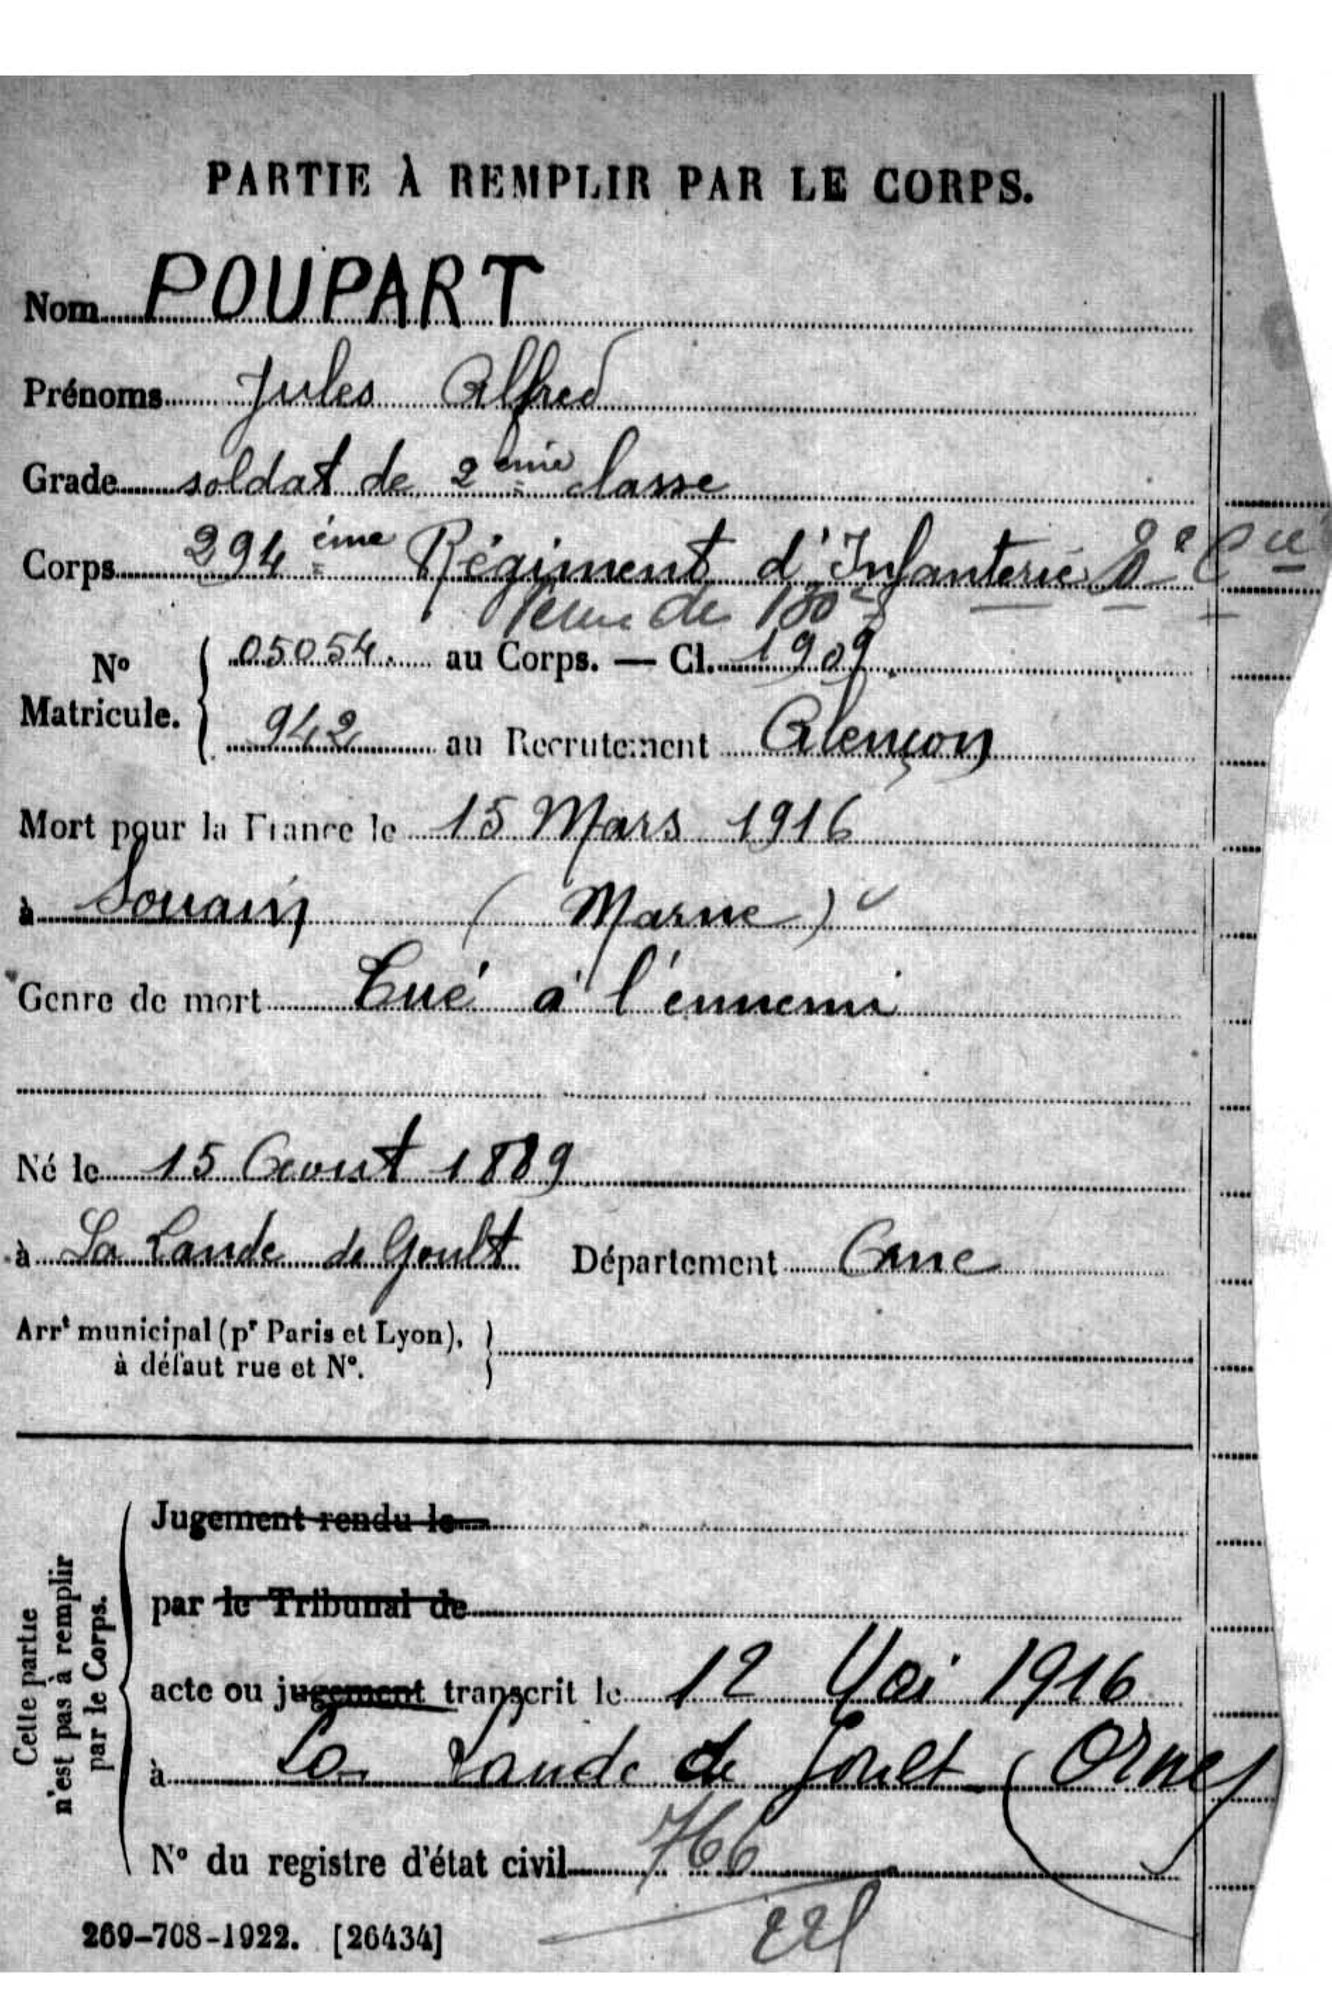 PARTIE À REMPLIR PAR LE CORPS.
Nom POUPART
Prénoms Jules Alfred
Grade soldat de 2ème classe
Corps 294ème Régiment d'Infanterie Cie
Venu de 130e
No Matricule. 05054. au Corps. — Cl. 1909.
942 au Recrutement Alençon
Mort pour la France le 15 Mars 1916
à Souain (Marne)
Genre de mort Tué à l'ennemi
Né le 15 Aout 1889
à La Lande de Goult Département Orne
Arrt municipal (pr Paris et Lyon),
à défaut rue et No.
Cette partie
n'est pas à remplir
par le Corps.
Jugement rendu le
par le Tribunal de
acte ou jugement transcrit le 12 Mai 1916
à La Lande de Goult (Orne)
No du registre d'état civil 766
269-708-1922. [26434]